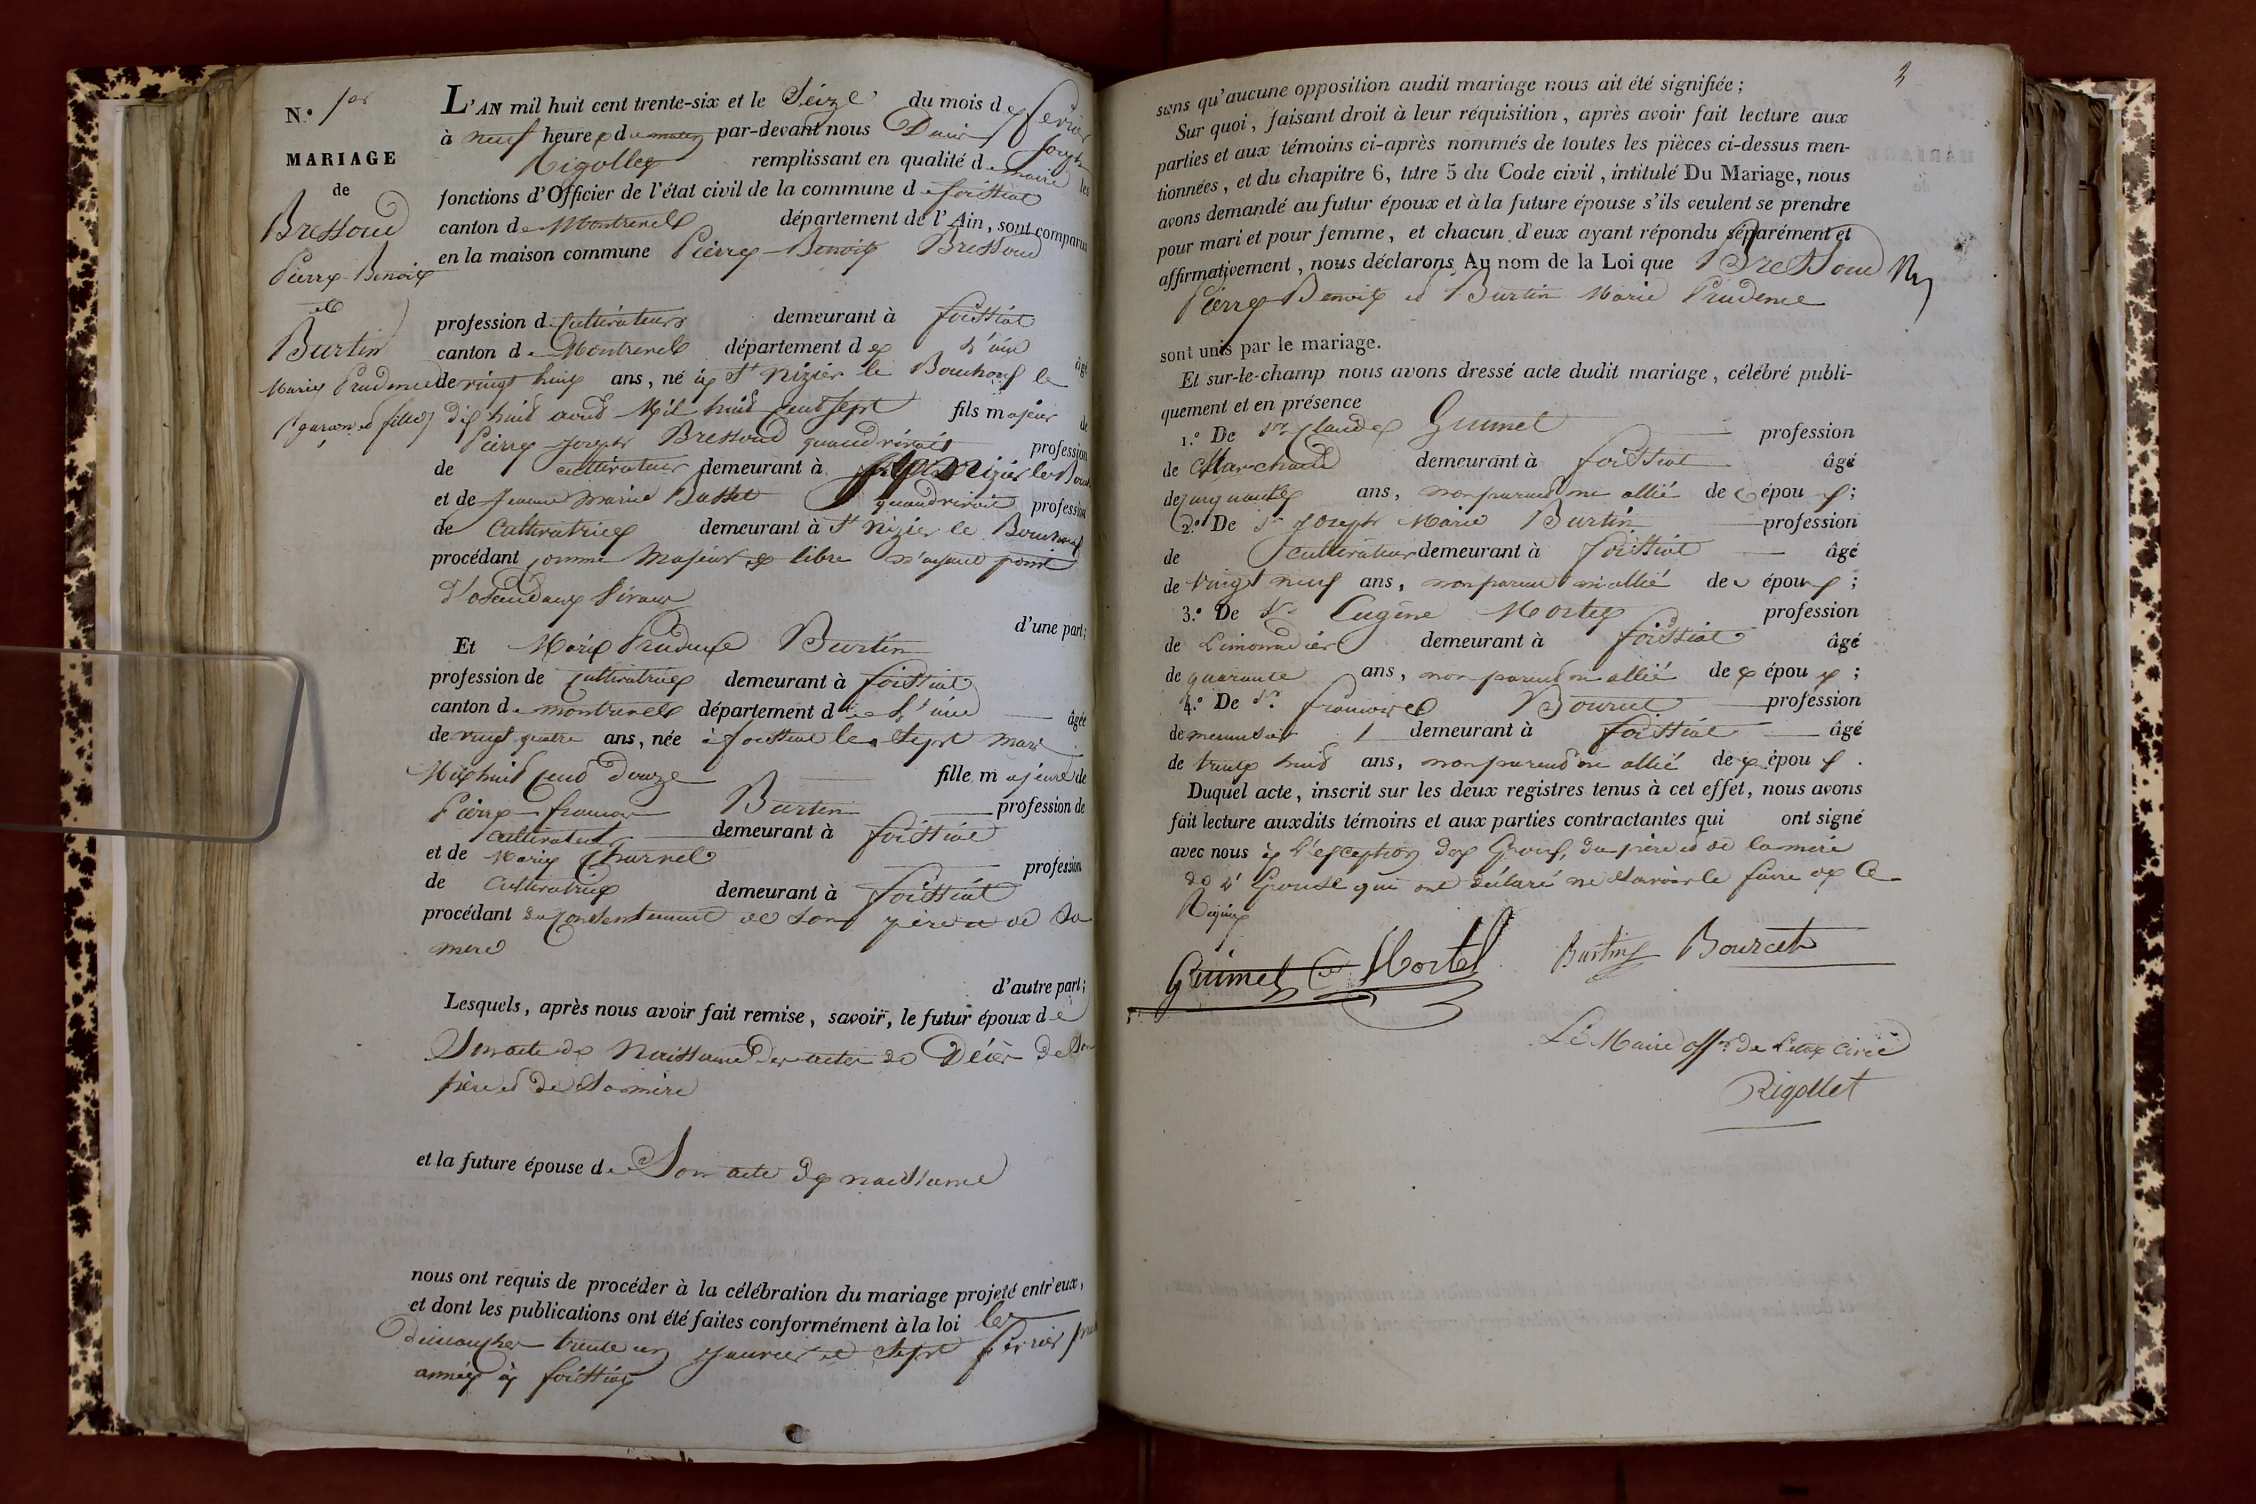 N.° 1er
MARIAGE
de
Bressoud
Pierre-Benoit
et
Burtin
Marie Prudence
(garcon et fille)
L'AN mil huit cent trente-six et le Seize du mois de fevrier
à neuf heures du matin par-devant nous Denis Joseph
Rigollet remplissant en qualité de maire les
fonctions d'Officier de l'état civil de la commune de foissiat
canton de Montrevel département de l'Ain, sont comparus
en la maison commune Pierre-Benoit Bressoud
profession de Cultivateur demeurant à foissiat
canton de Montrevel département de L'ain âgé
de vingt huit ans, né à St Nizier le Bouchoux le
dix huit aout Mil huit Cent Sept fils majeur de
Pierre Joseph Bressoud quand vivait profession
de cultivateur demeurant à St Nizier le Bouch
et de Jeanne Marie Basset quand vivait profession
de Cultivatrice demeurant à St Nizier le Bouchoux
procédant comme Majeur et libre n'ayant point
d'ascendans vivans
d'une part;
Et Marie Prudence Burtin
profession de cultivatrice demeurant à foissiat
canton de montrevel département de L'ain âgée
de vingt quatre ans, née à foissiat le Sept Mars
Mil huit Cent Douze fille majeure de
Pierre-francois Burtin profession de
cultivateur demeurant à foissiat
et de Marie Churnel profession
de Cultivatrice demeurant à foissiat
procédant du Consentement de son père et de Sa
mere
d'autre part;
Lesquels, après nous avoir fait remise, savoir, le futur époux de
Son acte de Naissance Des actes de Décès de Son
père et de Sa mère
et la future épouse de Son acte de naissance
nous ont requis de procéder à la célébration du mariage projeté entr'eux,
et dont les publications ont été faites conformément à la loi les
dimanches trente un Janvier et Sept fevrier
année à foissiat
3
sans qu'aucune opposition audit mariage nous ait été signifiée;
Sur quoi, faisant droit à leur réquisition, après avoir fait lecture aux
parties et aux témoins ci-après nommés de toutes les pièces ci-dessus men-
tionnées, et du chapitre 6, titre 5 du Code civil, intitulé Du Mariage, nous
avons demandé au futur époux et à la future épouse s'ils veulent se prendre
pour mari et pour femme, et chacun d'eux ayant répondu séparément et
affirmativement, nous déclarons Au nom de la Loi que Bressoud
Pierre Benoit et Burtin Marie Prudence
sont unis par le mariage.
Et sur-le-champ nous avons dressé acte dudit mariage, célébré publi-
quement et en présence
1.° De Sr Claude Guimet profession
de Marchand demeurant à foissiat âgé
de cinquante ans, non parent ni allié des époux;
2.° De Sr Joseph Marie Burtin profession
de cultivateur demeurant à foissiat âgé
de vingt neuf ans, non parent ni allié des époux;
3.° De Sr Eugène Mortel profession
de Limonadier demeurant à foissiat âgé
de quarante ans, non parent ni allié des époux;
4.° De Sr francois Bourcet profession
de menuisier demeurant à foissiat âgé
de trente huit ans, non parent ni allié des époux.
Duquel acte, inscrit sur les deux registres tenus à cet effet, nous avons
fait lecture auxdits témoins et aux parties contractantes qui ont signé
avec nous à l'exception des Epoux, du père et de la mère
de l'Epouse qui ont déclaré ne Savoir le faire de ce
Requis
Guimet E Mortel Burtin Bourcet
Le Maire offr de L'etat civil
Rigollet